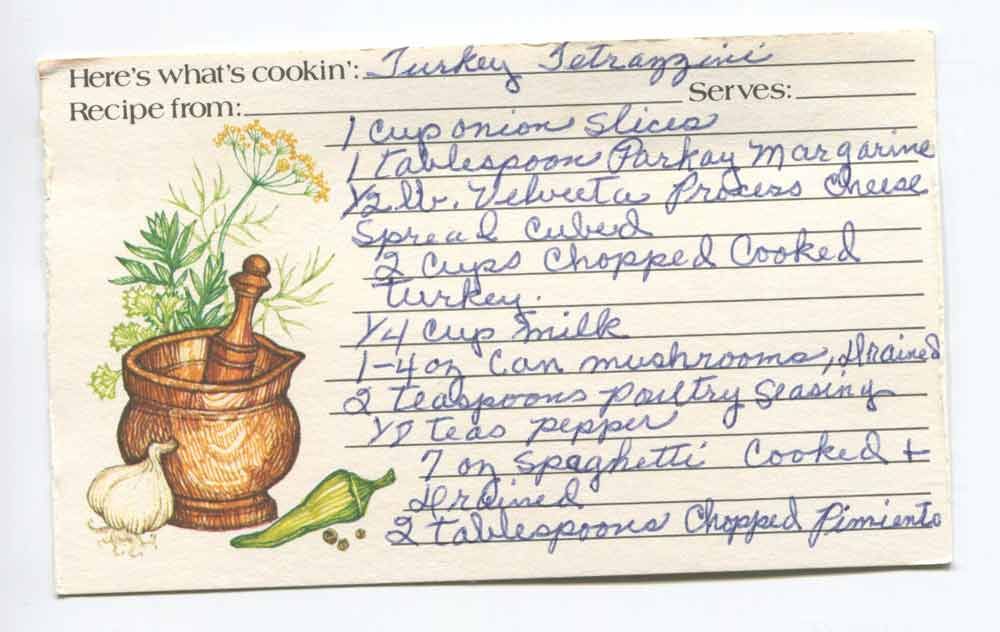 Here's what's cookin': Turkey Tetrazzini
Recipe from: Serves:
1 Cup onion slices
1 tablespoon Parkay Margarine
1/2 lb. Velveeta Process Cheese
Spread Cubed
2 Cups Chopped Cooked
turkey.
1/4 Cup milk
1-4 oz Can mushrooms, drained
2 teaspoons poultry seasing
1/8 teas pepper
7 oz spaghetti Cooked +
drained
2 tablespoons Chopped Pimiento